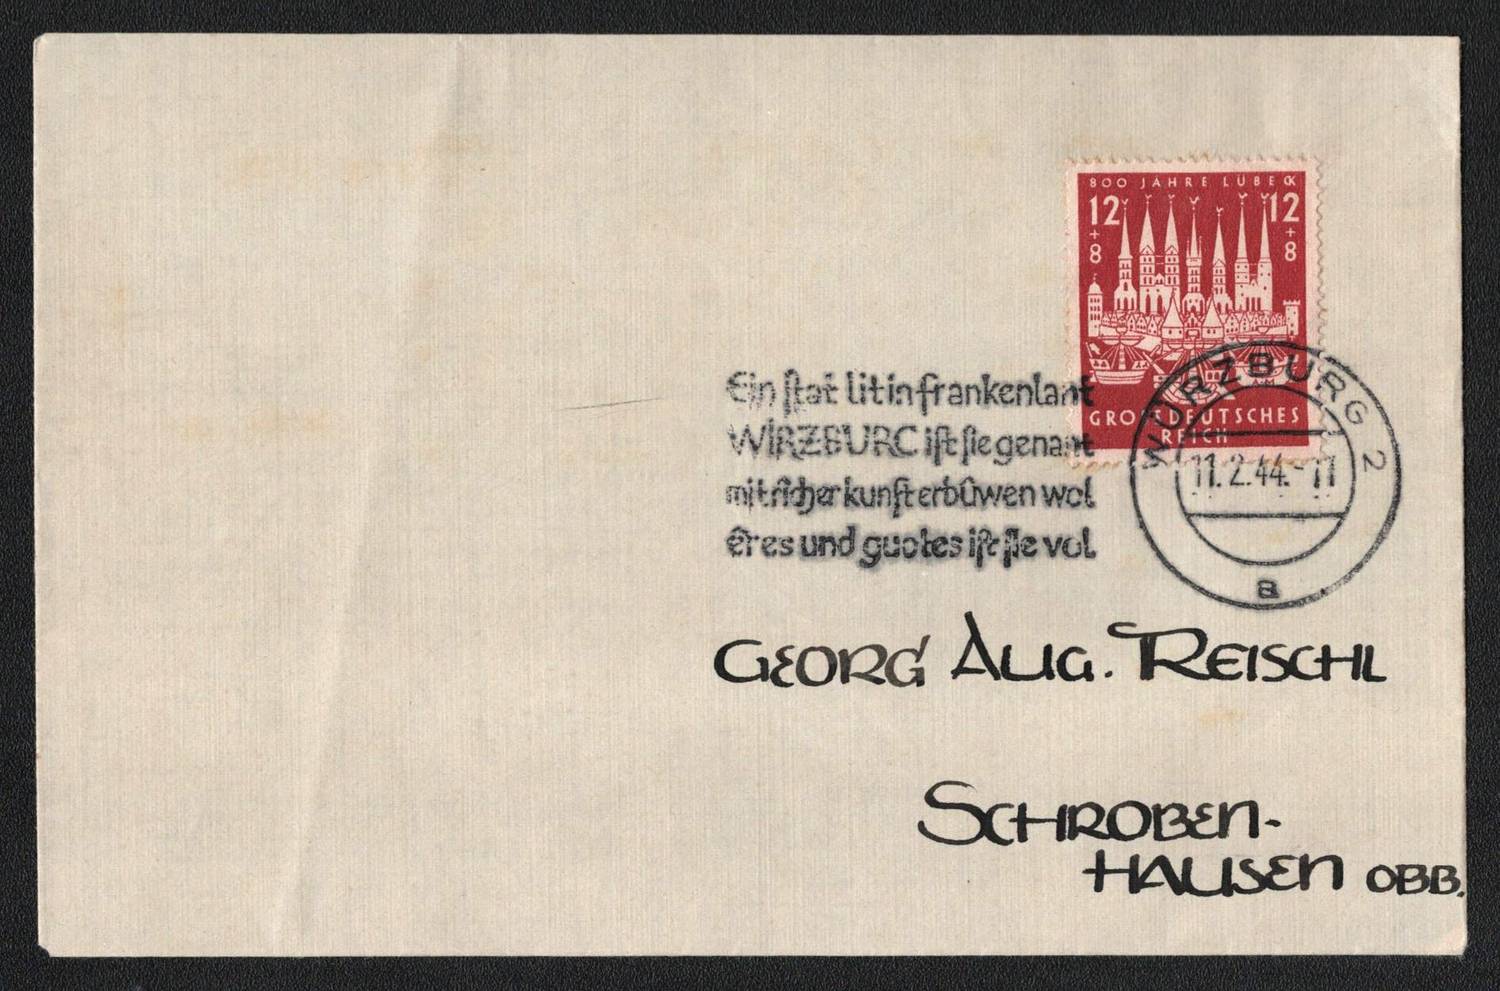 800 JAHRE LÜBECK
12 12
+ +
8 8
GROSSDEUTSCHES
REICH
WÜRZBURG 2
11.2.44.-11
a
Ein stat lit in frankenlant
WIRZBURC ist sie genant
mit richer kunst erbûwen wol
êres und guotes ist sie vol
GEORG AUG. REISCHL
SCHROBEN-
HAUSEN OBB.